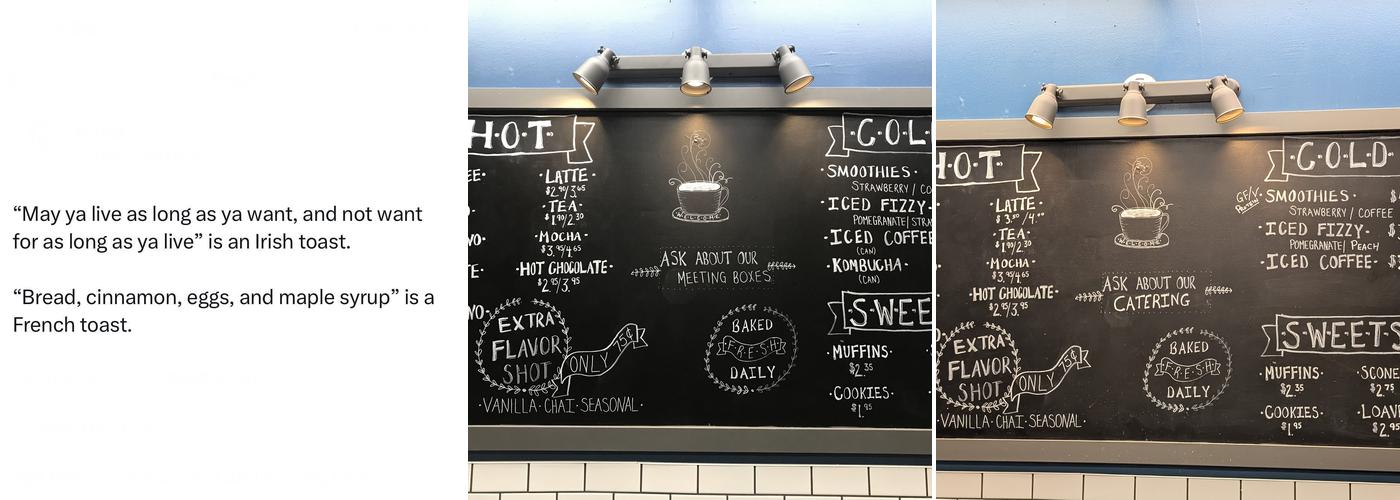 “May ya live as long as ya want, and not want
for as long as ya live” is an Irish toast.
“Bread, cinnamon, eggs, and maple syrup” is a
French toast.
H·O·T·
·LATTE·
$2.95/3.65
·TEA·
$1.90/2.30
·MOCHA·
$3.95/4.65
·HOT CHOCOLATE·
$2.95/3.95
EXTRA
FLAVOR
SHOT
ONLY 75¢
·VANILLA·CHAI·SEASONAL·
WELCOME
ASK ABOUT OUR
MEETING BOXES
BAKED
F·R·E·S·H
DAILY
·C·O·L·
·SMOOTHIES·
STRAWBERRY / CO
·ICED FIZZY·
POMEGRANATE/STRA
·ICED COFFEE
(CAN)
·KOMBUCHA·
(CAN)
·S·W·E·E
·MUFFINS·
$2.35
·COOKIES·
$1.95
HOT·
·LATTE·
$3.50/4.00
·TEA·
$1.90/2.30
·MOCHA·
$3.95/4.65
·HOT CHOCOLATE·
$2.95/3.95
EXTRA
FLAVOR
SHOT
ONLY 75¢
·VANILLA·CHAI·SEASONAL·
WELCOME
ASK ABOUT OUR
CATERING
BAKED
F·R·E·S·H
DAILY
·C·O·L·D·
·SMOOTHIES·
STRAWBERRY / COFFEE
·ICED FIZZY·
POMEGRANATE/ PEACH
·ICED COFFEE·
·S·W·E·E·T·S
·MUFFINS·
$2.35
·SCONE
$2.75
·COOKIES·
$1.95
·LOAV
$2.95